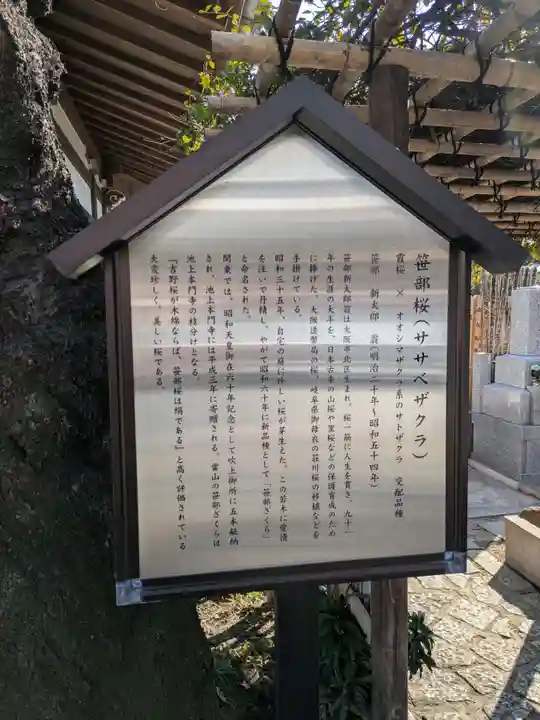 笹部桜(ササベザクラ)
霞桜 × オオシマザクラ系のサトザクラ 交配品種
笹部 新太郎 翁(明治二十年~昭和五十四年)
笹部新太郎翁は大阪市北区生まれ。桜一筋に人生を貫き、九十一
年の生涯の大半を、日本古来の山桜や里桜などの保護育成のため
に捧げた。大阪造幣局の桜、岐阜県御母衣の荘川桜の移植などを
手掛けている。
昭和三十五年、自宅の庭に珍しい桜が芽生えた。この若木に愛情
を注いで丹精し、やがて昭和六十年に新品種として「笹部ざくら」
と命名された。
関東では、昭和天皇御在六十年記念として吹上御所に五本献納
され、池上本門寺には平成三年に寄贈される。當山の笹部ざくらは
池上本門寺の枝分けとなる。
「吉野桜が木綿ならば、笹部桜は絹である」と高く評価されている
大変珍しく、美しい桜である。